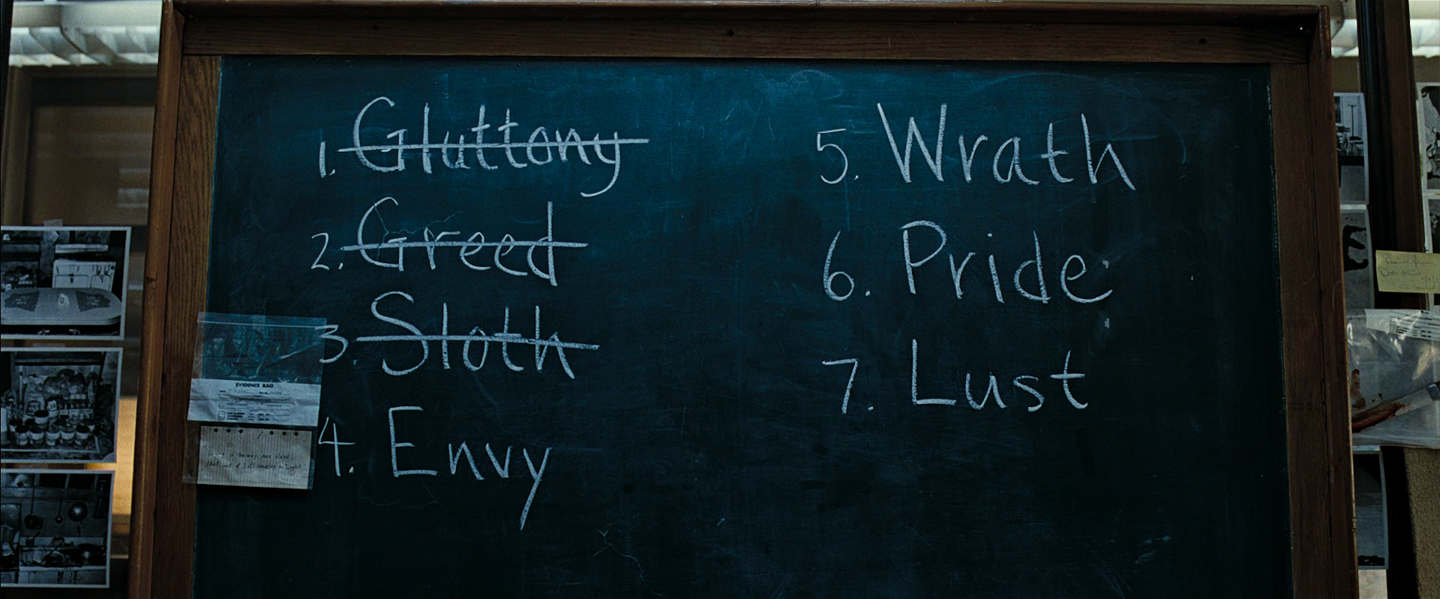 1. Gluttony
2. Greed
3. Sloth
4. Envy
5. Wrath
6. Pride
7. Lust
EVIDENCE BAG